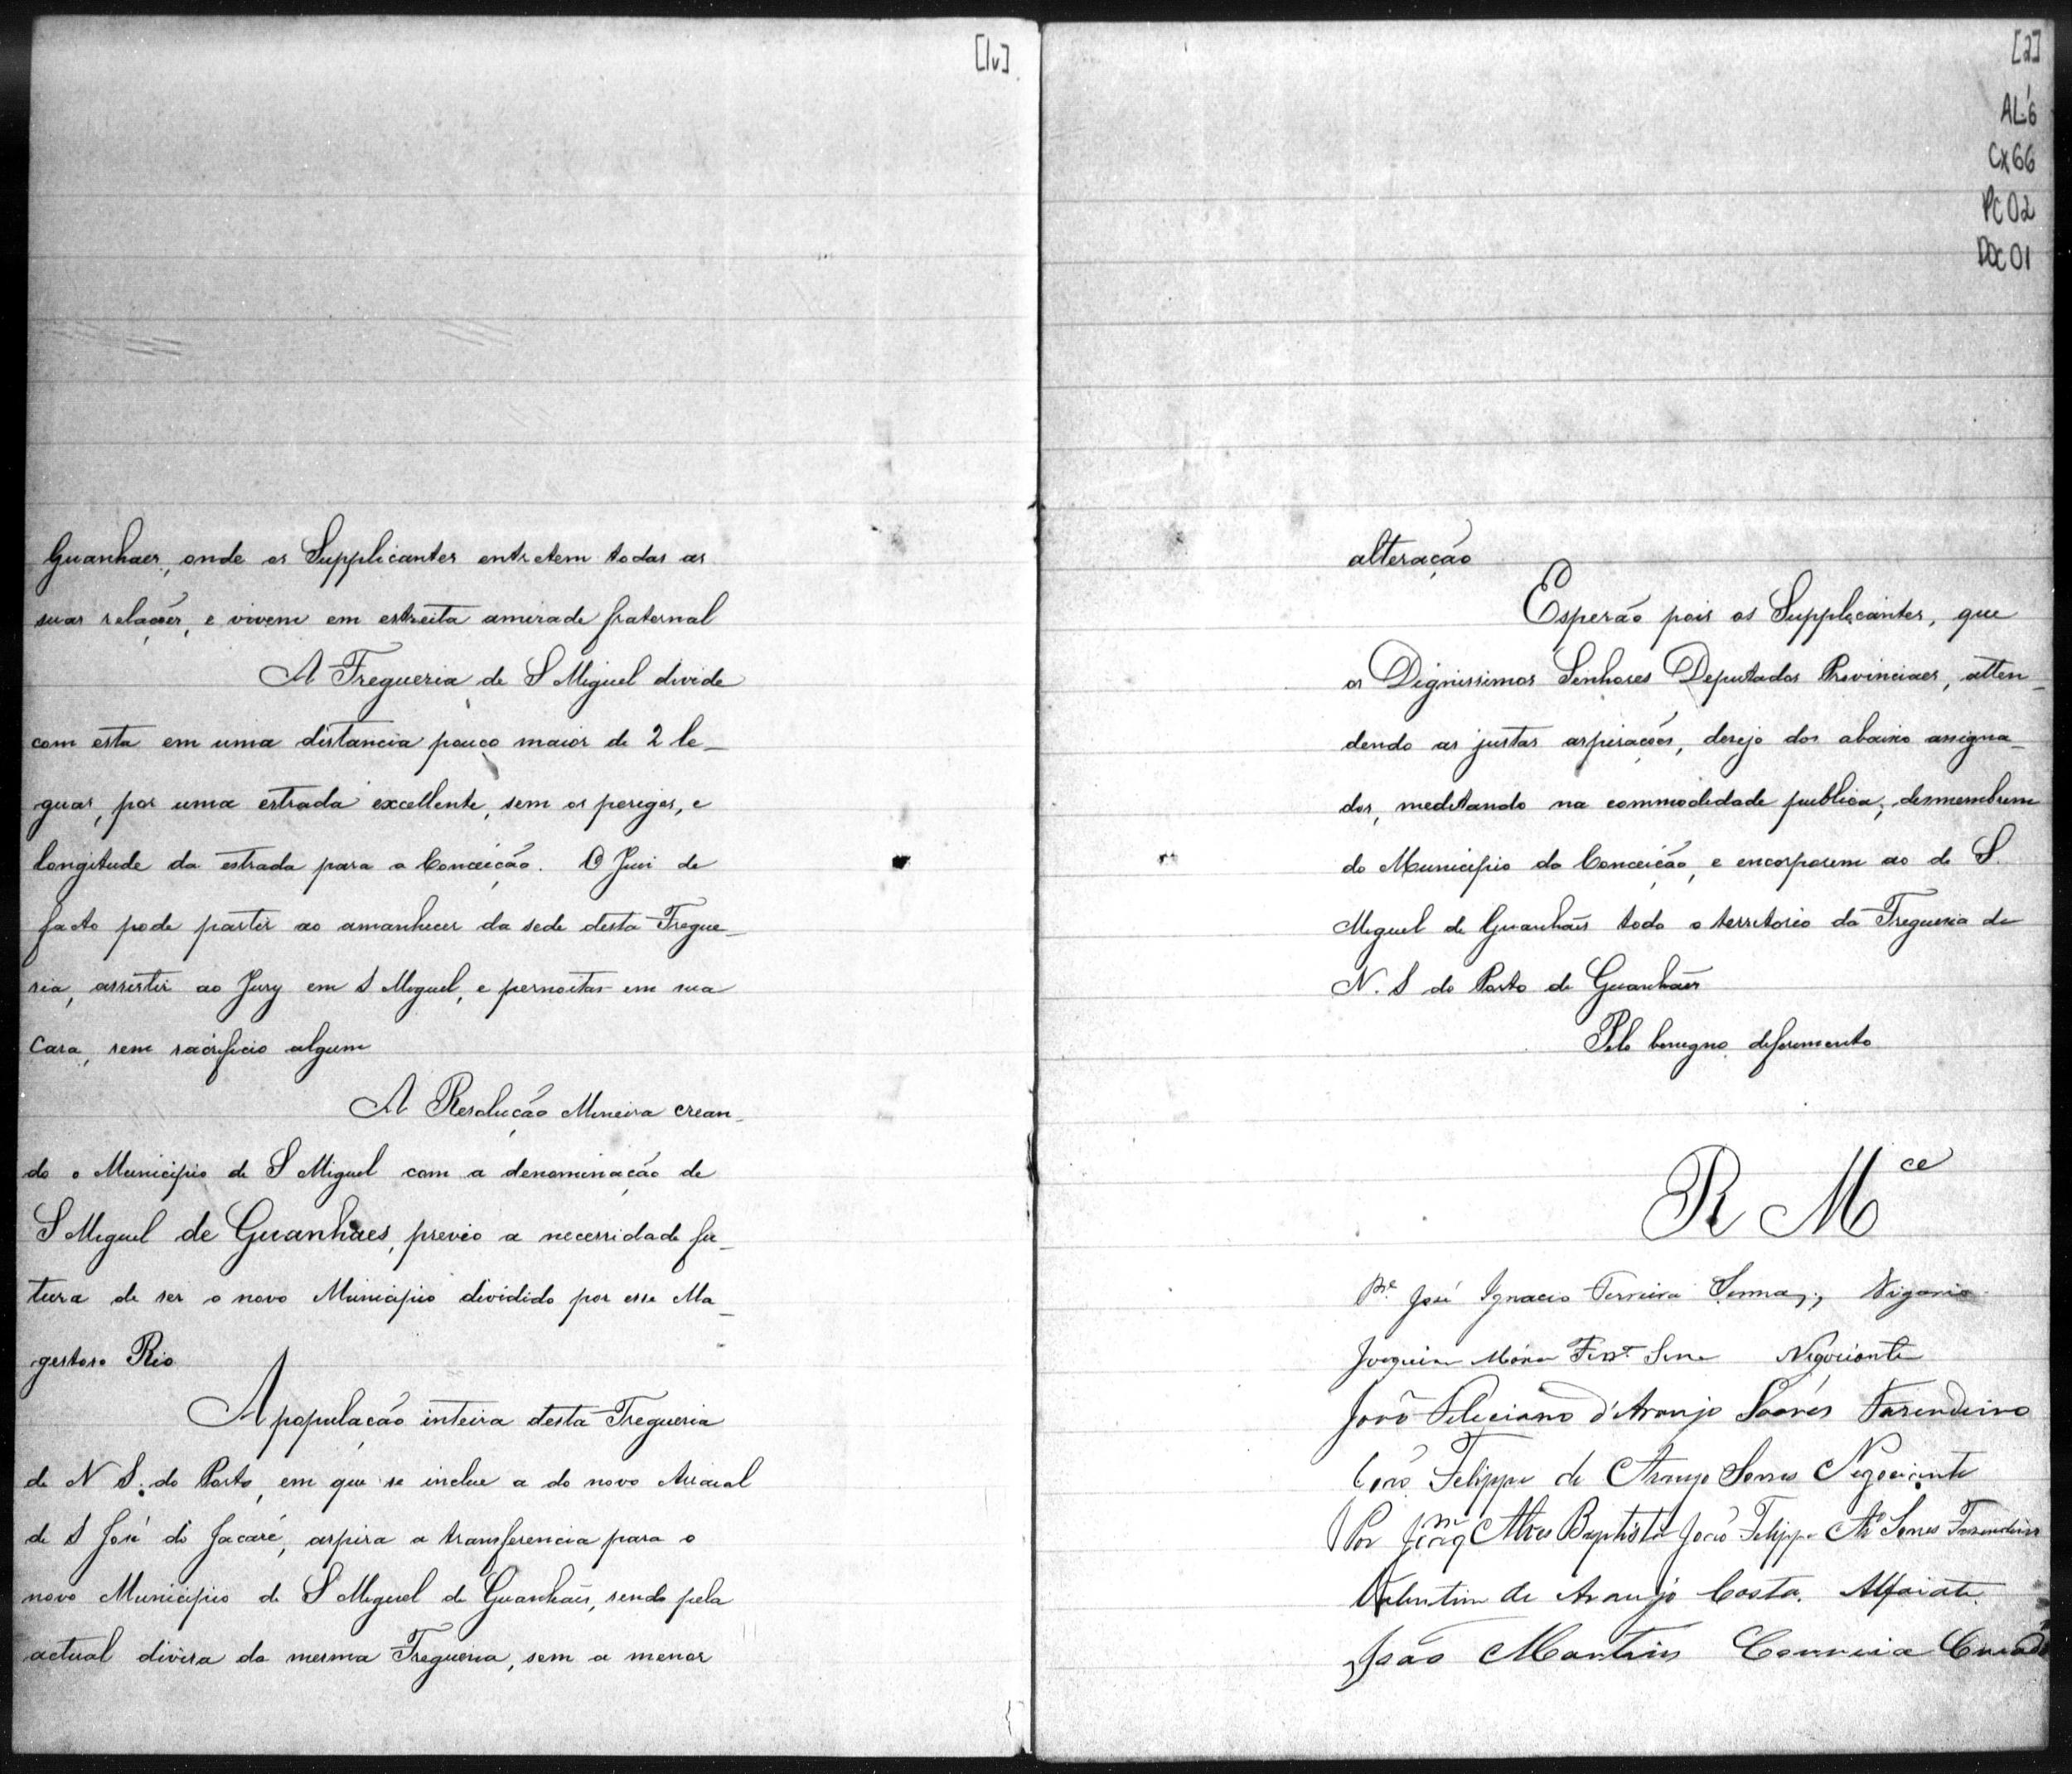 [1v]
Guanhaes, onde os Supplicantes entretem todas as
suas relações, e vivem em estreita amisade fraternal
A Freguesia de S Miguel divide
com esta em uma distancia pouco maior de 2 le_
guas, por uma estrada excellente, sem os perigos, e
longitude da estrada para a Conceição. O Juiz de
facto pode partir ao amanhecer da sede desta Fregue_
sia, assistir ao Jury em S Miguel, e pernoitar em sua
casa, sem sacrificio algum
A Resolução Mineira crean_
do o Municipio de S Miguel com a denominação de
S Miguel de Guanhães, previo a necessidade fu_
tura de ser o novo Municipio dividido por esse Ma_
gestoso Rio
A população inteira desta Freguesia
de N S. do Porto, em que se inclue a do novo Arraial
de S José do Jacaré, aspira a transferencia para o
novo Municipio de S Miguel de Guanhães, sendo pela
actual divisa da mesma Freguesia, sem a menor
[2]
AL.6
CX66
PC02
DOC01
alteração
Esperão pois os Supplicantes, que
os Dignissimos Senhores Deputados Provinciaes, atten_
dendo as justas aspirações, desejo dos abaixo assigna_
dos, meditando na commodidade publica, desmembrem
do Municipio da Conceição, e encorporem ao de S.
Miguel de Guanhães todo o territorio da Freguesia de
N. S do Porto de Guanhães
Pelo benigno deferimento
R M.ce
P.e José Ignacio Ferreira Senna, Vigario
Joaquim Ferr.a Negociante
João Feliciano d'Araujo Soares Fasendeiro
João Felippe de Araujo Soares Negociante
Por Joaq.m Alves Baptista João Felippe Ar.o Soares Fazendeiro
Valentim de Araujo Costa. Alfaiate.
João Martins Correia